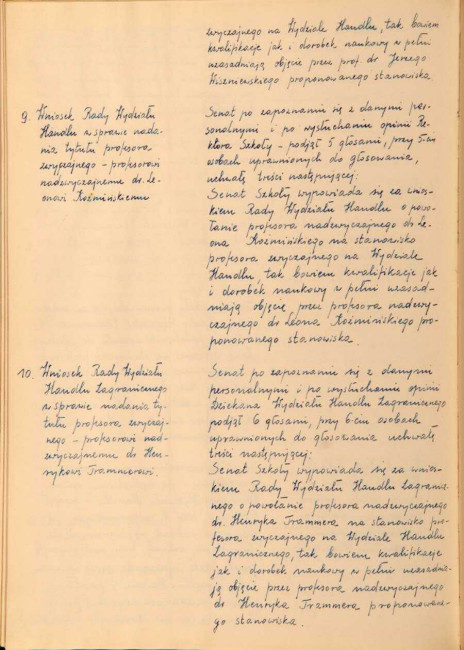 zwyczajnego na Wydziale Handlu, tak bowiem
kwalifikacje jak i dorobek naukowy w pełni
uzasadniają objęcie przez prof. dr Jerzego
Wiszniewskiego proponowanego stanowiska
9. Wniosek Rady Wydziału
Handlu w sprawie nada-
nia tytułu profesora
zwyczajnego - profesorowi
nadzwyczajnemu dr Le-
onowi Koźmińskiemu
Senat po zapoznaniu się z danymi per-
sonalnymi i po wysłuchaniu opinii Re-
ktora Szkoły - podjął 5 głosami, przy 5-ciu
osobach uprawnionych do głosowania,
uchwałę treści następującej:
Senat Szkoły wypowiada się za wnios-
kiem Rady Wydziału Handlu o powo-
łanie profesora nadzwyczajnego dr Le-
ona Koźmińskiego na stanowisko
profesora zwyczajnego na Wydziale
Handlu, tak bowiem kwalifikacje jak
i dorobek naukowy w pełni uzasad-
niają objęcie przez profesora nadzwy-
czajnego dr Leona Koźmińskiego pro-
ponowanego stanowiska.
10. Wniosek Rady Wydziału
Handlu Zagranicznego
w sprawie nadania ty-
tułu profesora zwyczaj-
nego - profesorowi nad-
zwyczajnemu dr Hen-
rykowi Trammerowi.
Senat po zapoznaniu się z danymi
personalnymi i po wysłuchaniu opinii
Dziekana Wydziału Handlu Zagranicznego
podjął 6 głosami, przy 6-ciu osobach
uprawnionych do głosowania uchwałę
treści następującej:
Senat Szkoły wypowiada się za wnios-
kiem Rady Wydziału Handlu Zagranicz-
nego o powołanie profesora nadzwyczajnego
dr. Henryka Trammera na stanowisko pro-
fesora zwyczajnego na Wydziale Handlu
Zagranicznego, tak bowiem kwalifikacje
jak i dorobek naukowy w pełni uzasadnia-
ją objęcie przez profesora nadzwyczajnego
dr Henryka Trammera proponowane-
go stanowiska.